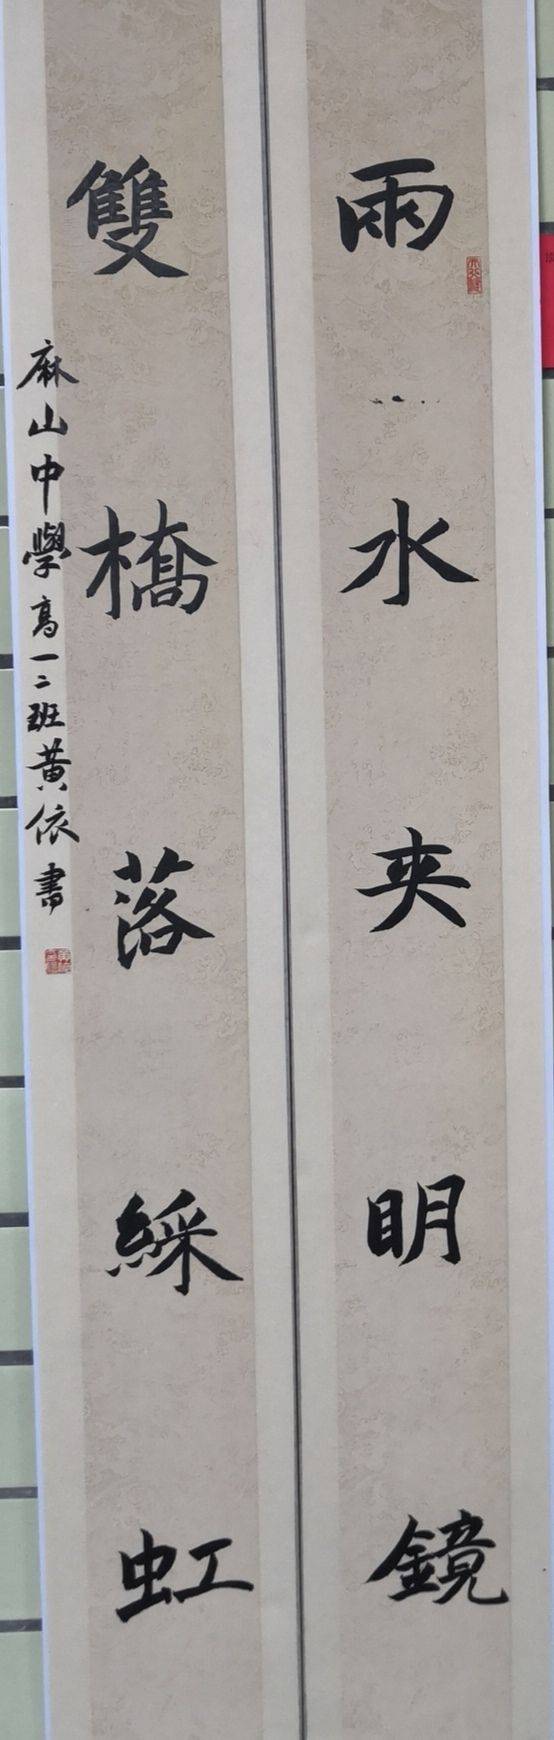 兩水夾明鏡
雙橋落綵虹
麻山中學高一二班黃依書